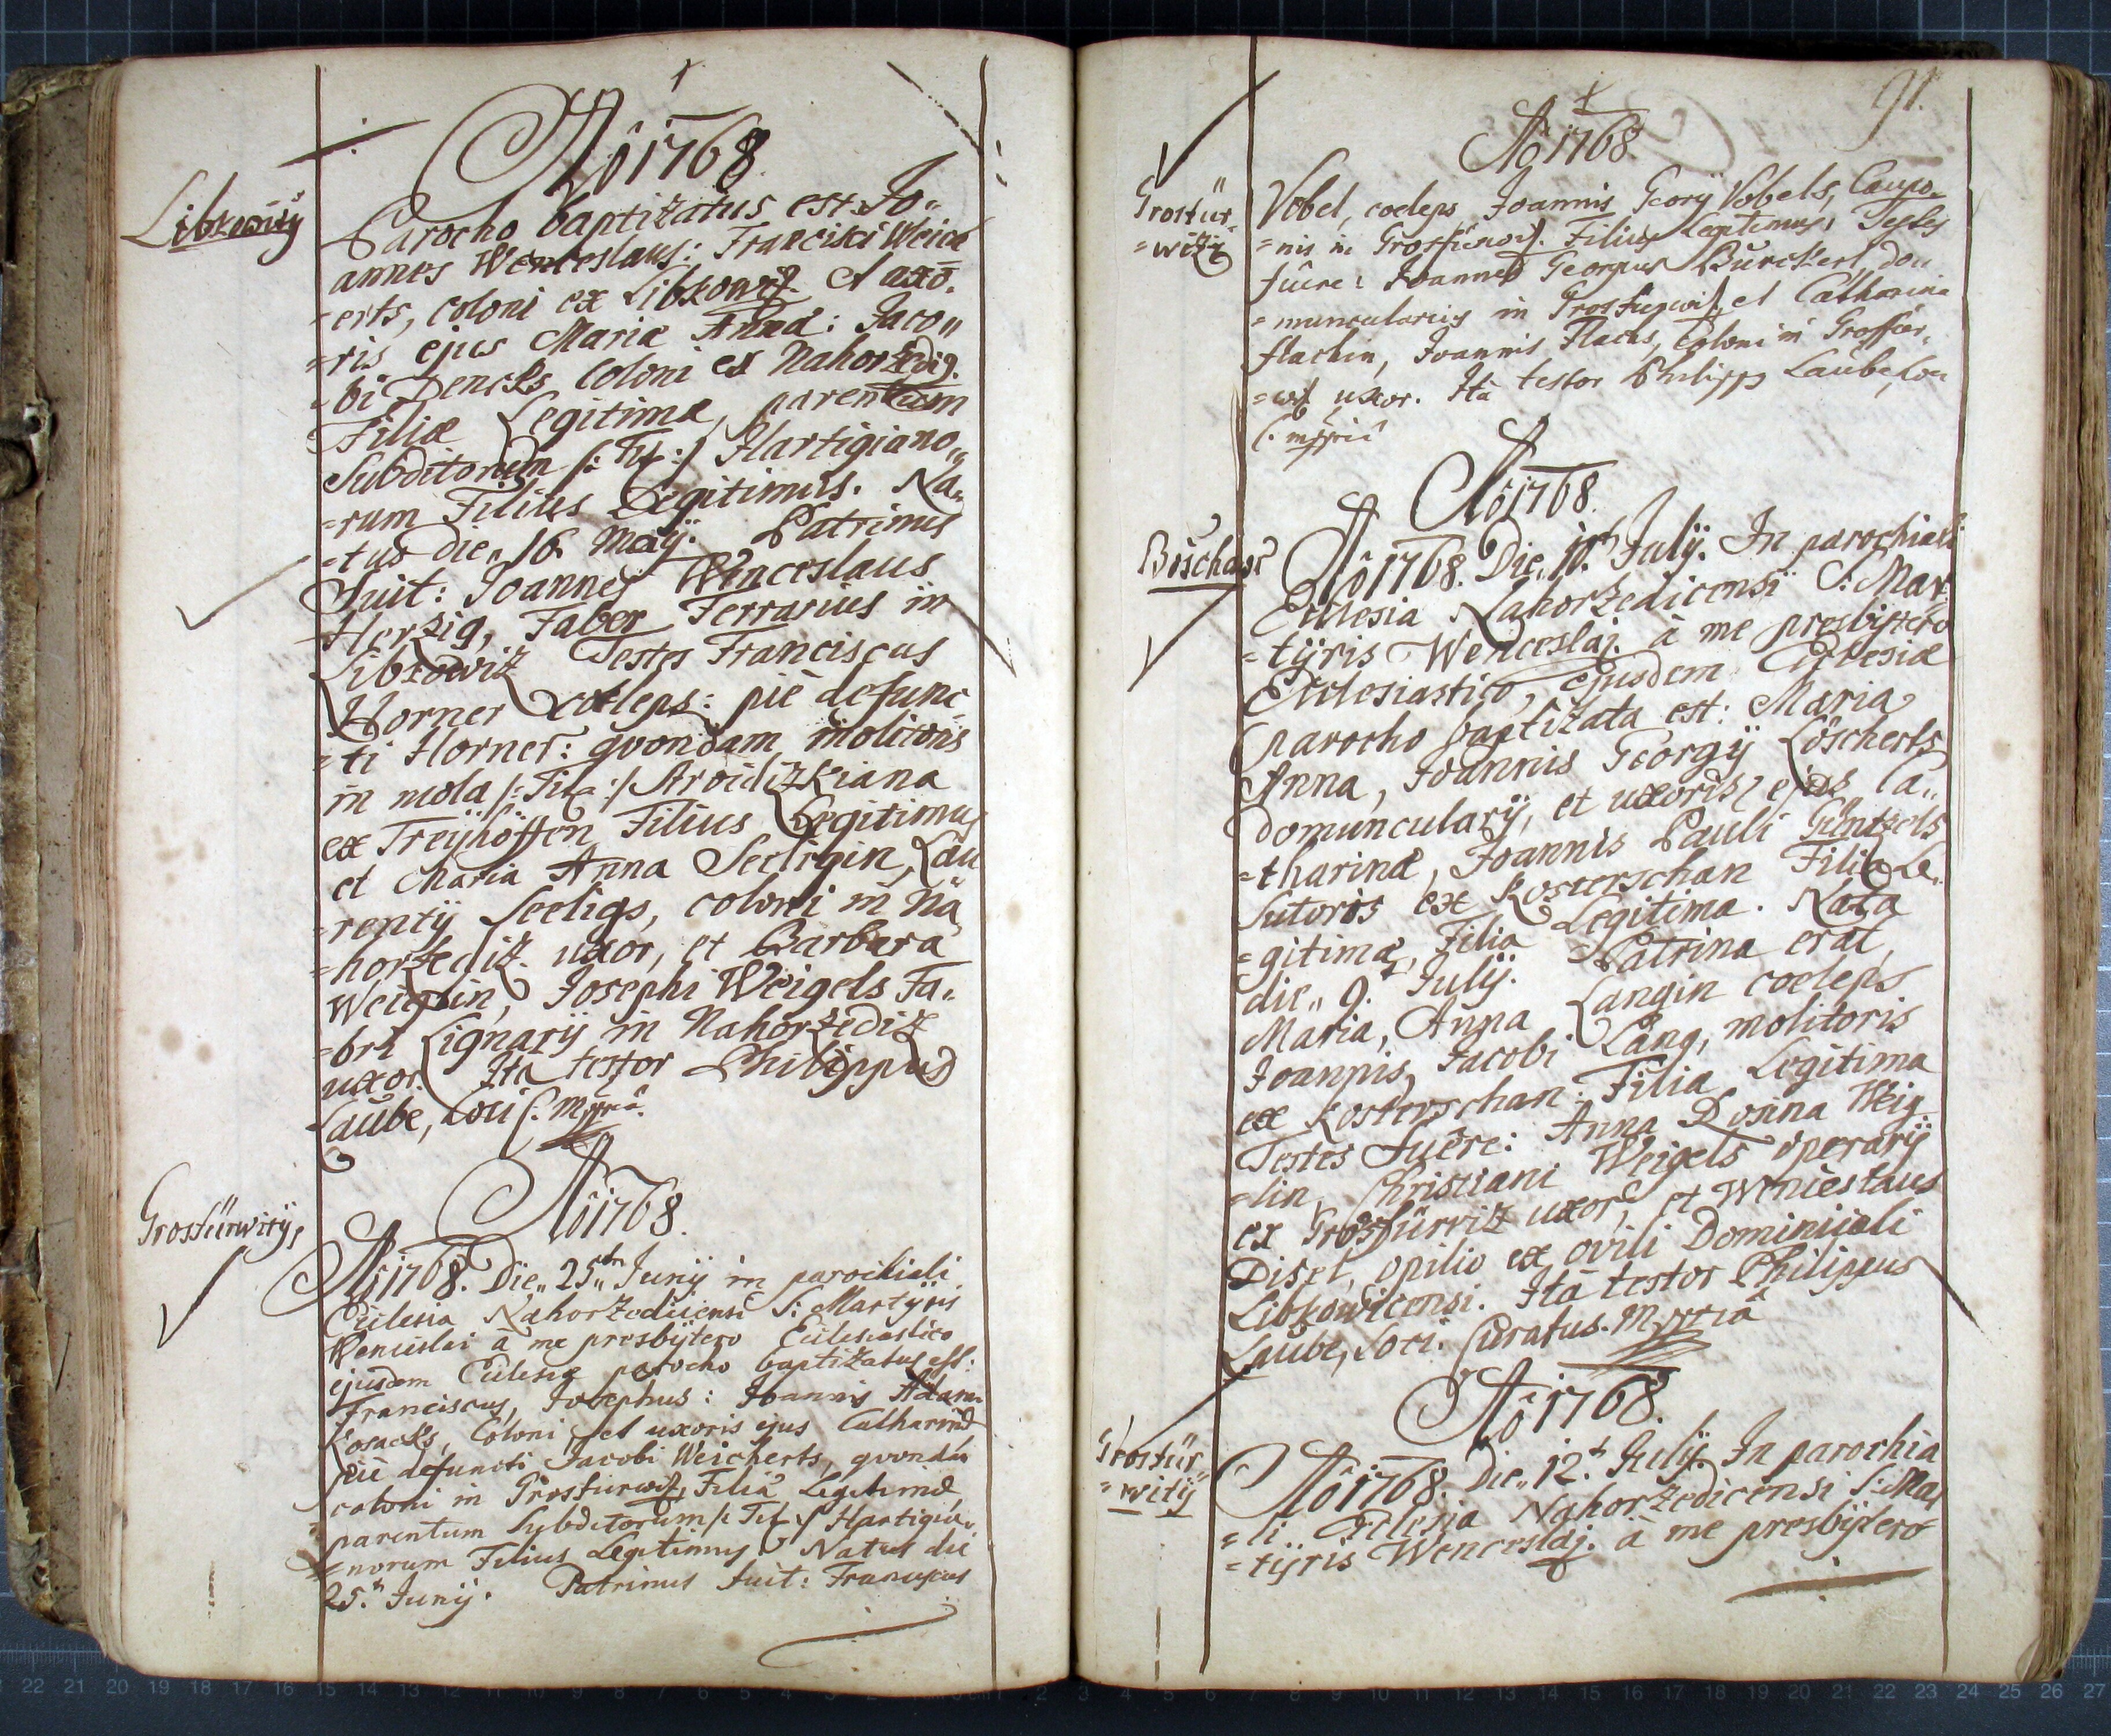 Aô 1768.
Libkowitz
Parocho baptizatus est: Jo-
annes Wenceslaus: Francisci Weick
=erts, coloni ex Libkowitz et uxo.
=ris ejus Mariæ Annæ: Jaco„
=bi Dencks Coloni ex Nahorzedig.
Filiæ Legitimæ, parentum
Subditorum /: Tit :/ Hartigiano„
=rum Filius Legitimus. Na„
=tus die„ 16. Maÿ. Patrinus
Fuit: Joannes Wenceslaus
Herzig, Faber Ferrarius in
Libkowitz Testes Franciscus
Horner coeleps: piè defunc
=ti Horner: qvondam molitoris
in mola /: Tit :/
ex Treÿhöffen Filius Legitimus
et Maria Anna Seeligin, Lau
=rentÿ Seeligs, coloni in Na
=horzediz. uxor, et Barbara
Weiglin, Josephi Weigels Fa„
=bri Lignarÿ in Nahorzediz
uxor. Ita testor Philippus
Laube, Loci C. mppriâ.
Aô 1768.
Grosfürwitz
Aô 1768. Die„ 25„ Junÿ in parochiali
Ecclesia Nahorzedicensi S: Martÿris
Wenceslai à me presbÿtero Ecclesiastico
ejusdem Ecclesiæ parocho baptizatus est:
Franciscus, Josephus: Joannis Adam
Kosacks, Coloni, et uxoris ejus Catharinæ
piè defuncti Jacobi Weicherts, qvondā
coloni in Grosfurwitz, Filiæ Legitimæ
parentum Subditorum /: Tit :/ Hartigia„
=norum Filius Legitimus. Natus die
25.ª Junÿ. Patrinus Fuit: Franciscus
91.
Aô 1768.
Grosfür-
=witz
Vobel, coeleps Joannis Georÿ Vobels, Caupo-
=nis in Filius Legitimus, Testes
fuere: Joannes Georgius Burckert, do
=muncularius in Grosfurwitz, et Catharina
Flachin, Joannis Flachs, Coloni in Grosfür.
=witz uxor. Ità testor Philipp Laube, Loci
C. mppriâ
Aô 1768.
Böschan
Aô 1768. Die„ 10.ª Julÿ. In parochiali
Ecclesia Nahorzedicensi S: Mar
=tÿris Wenceslaj. à me presbÿtero
Ecclesiastico, ejusdem Ecclesiæ
parocho baptizata est: Maria
Anna, Joannis Georgÿ Löscherts
domuncularÿ, et uxoris ejus Ca„
=tharinæ, Joannis Pauli Güntzels
Sutoris ex Kosterschan Filiæ Le„
=gitimæ, Filia Legitima. Nata
die„ 9.ª Julÿ. Patrina erat
Maria, Anna Langin coeleps
Joannis, Jacobi Lang, molitoris
ex Kosterschan: Filia Legitima
Testes Fuere: Anna Rosina Weig
=lin, Christiani Weigels operarÿ
ex Grosfürwiz uxor, et Wenceslaus
Disel, opilio ex ovili Dominicali
Libkowicensi. Ità testor Philippus
Laube, Loci. Curatus. Mppriâ
Aô 1768.
Grosfür
=witz
Aô 1768. Die„ 12.ª Julÿ. In parochia
=li Ecclesia Nahorzedicensi S: Mar
=tÿris Wenceslaj. à me presbÿtero